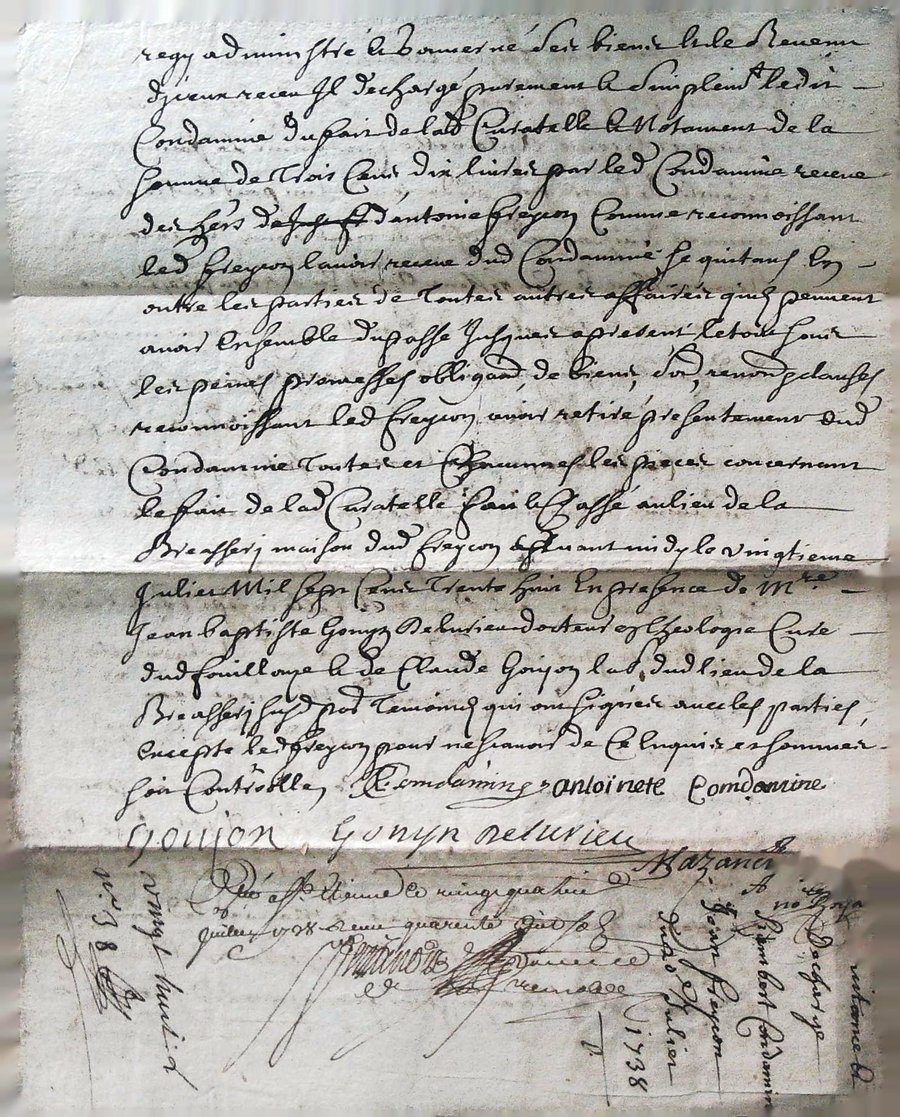 regy administré & Gouverné des biens & le Revenu
d'jceux receu Il decharge purement & simplemt ledit
Condamine du fait de lad Curatelle & Notament de la
somme de Trois Cens dix livres par led Condamine receue
des hers de d'antoine freycon Comme reconnoissant
led freycon lavoir receue dud Condamine se quitans En
outre les parties de Toutes autres affaires quils peuvent
avoir Ensemble du passé Jusques a present le tout sous
les peines promesses obligaõns de biens renonõns clauses
reconnoissant led freycon avoir retiré presentement dud
Condamine Toutes et Chacunnes les pieces concernant
le fait de lad Curatelle fait & Passé au lieu de la
Breassery maison dud freycon avant midy le vingtieme
Juliet Mil sept Cens Trente huit En presence de Mre
Jean baptiste Gonyn Delurieu docteur en Theologie Cure
dud fouillouze & de Claude Goujon lab dud lieu de la
Breassery Temoins qui ont signés avec les parties
Excepté led freycon pour ne scavoir de Ce Enquis et sommes
soit Contrôllé Condamine antoinete Comdamine
Goujon Gonyn Delurieu
Mazancy
no Roya
a st Etienne le vingt quatre
Juillet 1738 Receu quarente huit sols
vingt huit
n° 38
quitance &
decharge
A
Rambert Condamine
Jean freycon
du 20e Julliet
1738